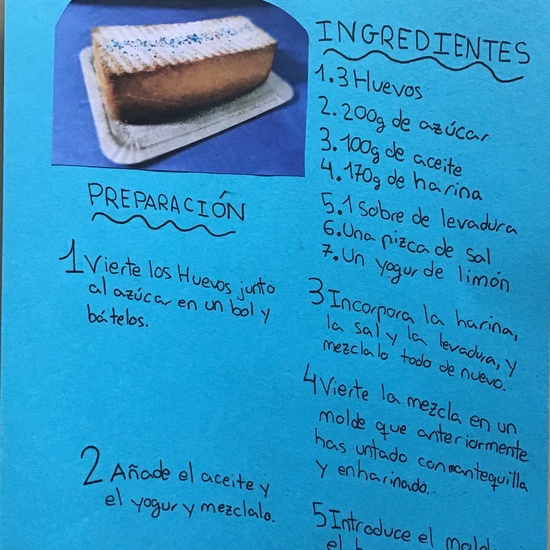 INGREDIENTES
1. 3 Huevos
2. 200g de azúcar
3. 100g de aceite
4. 170g de harina
5. 1 sobre de levadura
6. Una pizca de sal
7. Un yogur de limón
PREPARACIÓN
1 Vierte los Huevos junto
al azúcar en un bol y
bátelos.
2 Añade el aceite y
el yogur y mezclalo.
3 Incorpora la harina,
la sal y la levadura, y
mezclalo todo de nuevo.
4 Vierte la mezcla en un
molde que anteriormente
has untado con mantequilla
y enharinado.
5 Introduce el
el